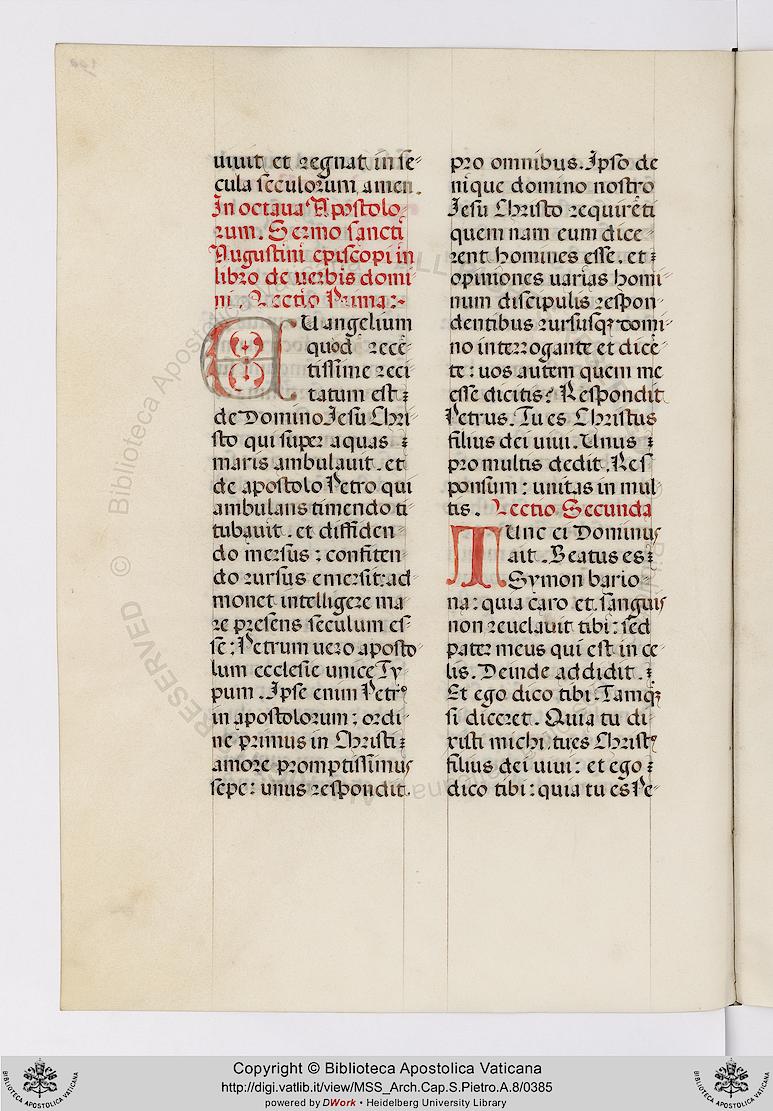 uiuit et regnat in se-
cula seculorum amen.
In octaua Apostolo-
rum. Sermo sancti
Augustini episcopi in
libro de uerbis domi-
ni. Lectio Prima:-
EUangelium
quod recē-
tissime reci-
tatum est:
de Domino Jesu Chri-
sto qui super aquas :
maris ambulauit. et
de apostolo Petro qui
ambulans timendo ti-
tubauit. et diffiden-
do mersus: confiten-
do rursus emersit: ad-
monet intelligere ma-
re presens seculum es-
se: Petrum uero aposto-
lum ecclesie unice Ty-
pum. Ipse enim Petrꝰ
in apostolorum: ordi-
ne primus in Christi:
amore promptissimus
sepe: unus respondit.
pro omnibus. Ipso de
nique domino nostro
Jesu Christo requirēti
quem nam eum dice-
rent homines esse. et:
opiniones uarias homi-
num discipulis respon-
dentibus rursusqꝫ domi-
no interrogante et dicē-
te: uos autem quem me
esse dicitis? Respondit
Petrus. Tu es Christus
filius dei uiui. Unus :
pro multis dedit. Res
ponsum: unitas in mul-
tis. Lectio Secunda
TUnc ei Dominus
ait. Beatus es:
Symon bario-
na: quia caro et sanguis
non reuelauit tibi: sed
pater meus qui est in ce-
lis. Deinde addidit.:
Et ego dico tibi. Tamqꝫ
si diceret. Quia tu di-
xisti michi tues Christꝰ
filius dei uiui: et ego:
dico tibi: quia tu es Pe-
Copyright © Biblioteca Apostolica Vaticana
http://digi.vatlib.it/view/MSS_Arch.Cap.S.Pietro.A.8/0385
powered by DWork • Heidelberg University Library